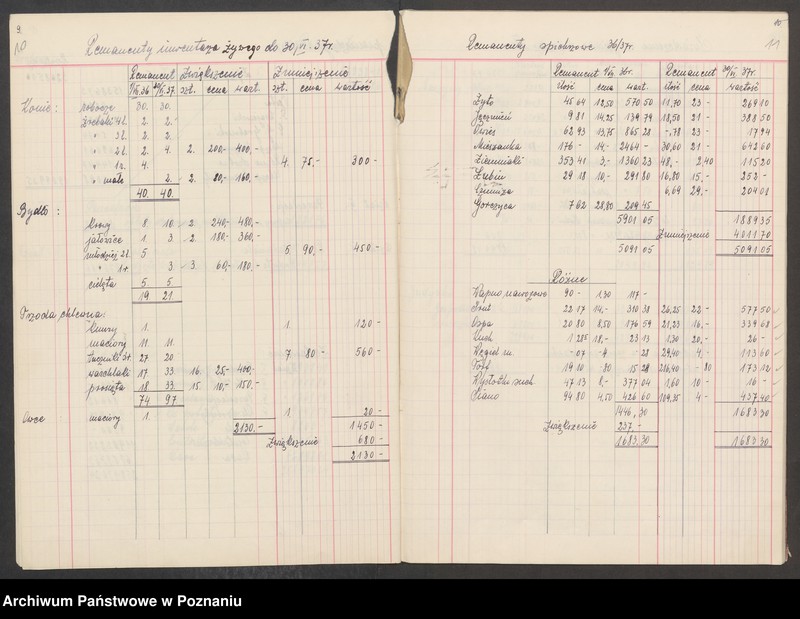 9.
Remanenty inwentarza żywego do 30/VI. 37r.
Remanent Zwiększenie Zmniejszenie
1/VII.36 30/VI.37. szt. cena wart. szt. cena wartość
Konie: robocze 30. 30.
Źrebaki 4l. 2. 2.
" 3l. 2. 2.
" 2l. 2. 4. 2. 200,- 400,-
" 1r. 4. 4. 75,- 300-
" małe 2. 2. 80,- 160,-
40. 40.
Bydło:
krowy 8. 10. 2 240,- 480,-
jałowice 1. 3. 2. 180,- 360,-
młodzież 2l. 5 5. 90,- 450-
" 1r. 3 3. 60,- 180,-
cielęta 5 5
19 21
Trzoda chlewna:
knury 1. 1. 120-
maciory 11. 11.
tuczniki 27 20 7. 80- 560-
warchlaki 17 33 16. 25- 400,-
prosięta 18 33. 15. 10,- 150,-
74 97
Owce maciory 1. 1 20-
2130.- 1450-
Zwiększenie 680-
2130-
10
11
Remanenty spichrzowe 36/37r.
Remanent 1/VII. 36r. Remanent 30/VI. 37r.
ilość cena wart. ilość cena wartość
Żyto 45 64 12,50 570 50 11,70 23- 269 10
Jęczmień 9 81 14,25 139 79 18,50 21- 388 50
Owies 62 93 13,75 865 28 -,78 23- 17 94
Mieszanka 176- 14,- 2464- 30,60 21- 642 60
Ziemniaki 353 41 3,- 1360 23 48,- 2,40 115 20
Łubin 29 18 10,- 291 80 16,80 15,- 252-
6,69 29,- 204 01
Gorczyca 7 62 28,80 209 45
5901 05 1889 35
Zmniejszenie 4011 70
5091 05 5091 05
Różne
Wapno nawozowe 90- 1,30 117-
22 17 14,- 310 38 26,25 22- 577 50
Ospa 20 80 8,50 176 59 21,23 16,- 339 68
1 285 18,- 23 13 1,30 20,- 26-
Węgiel -07 4 -28 29,40 4,- 113 60
Torf 19 10 -80 15 28 216,40 -80 173 12
Wysłodki such 47 13 8,- 377 04 1,60 10- 16-
Siano 94 80 4,50 426 60 109,35 4- 437 40
1446,30 1683 30
Zwiększenie 237-
1683.30 1683 30
Archiwum Państwowe w Poznaniu